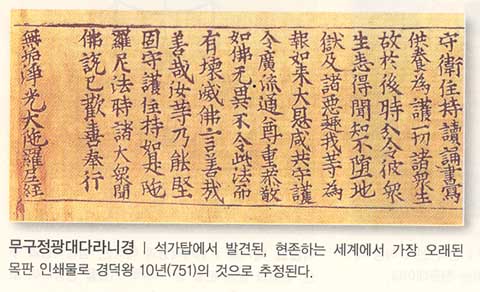 守衛住持讀誦書寫
供養為護一切諸衆生
故於後時分令彼衆
生悉得聞知不墮地
獄及諸惡趣我等為
報如来大恩咸共守護
令廣流通尊重恭敬
如佛无異不令此法而
有壞滅佛言善哉
善哉汝等乃能堅
固守護住持如是陁
羅尼法時諸大衆聞
佛說已歡喜奉行
無垢淨光大陁羅尼經
무구정광대다라니경 | 석가탑에서 발견된, 현존하는 세계에서 가장 오래된
목판 인쇄물로 경덕왕 10년(751)의 것으로 추정된다.